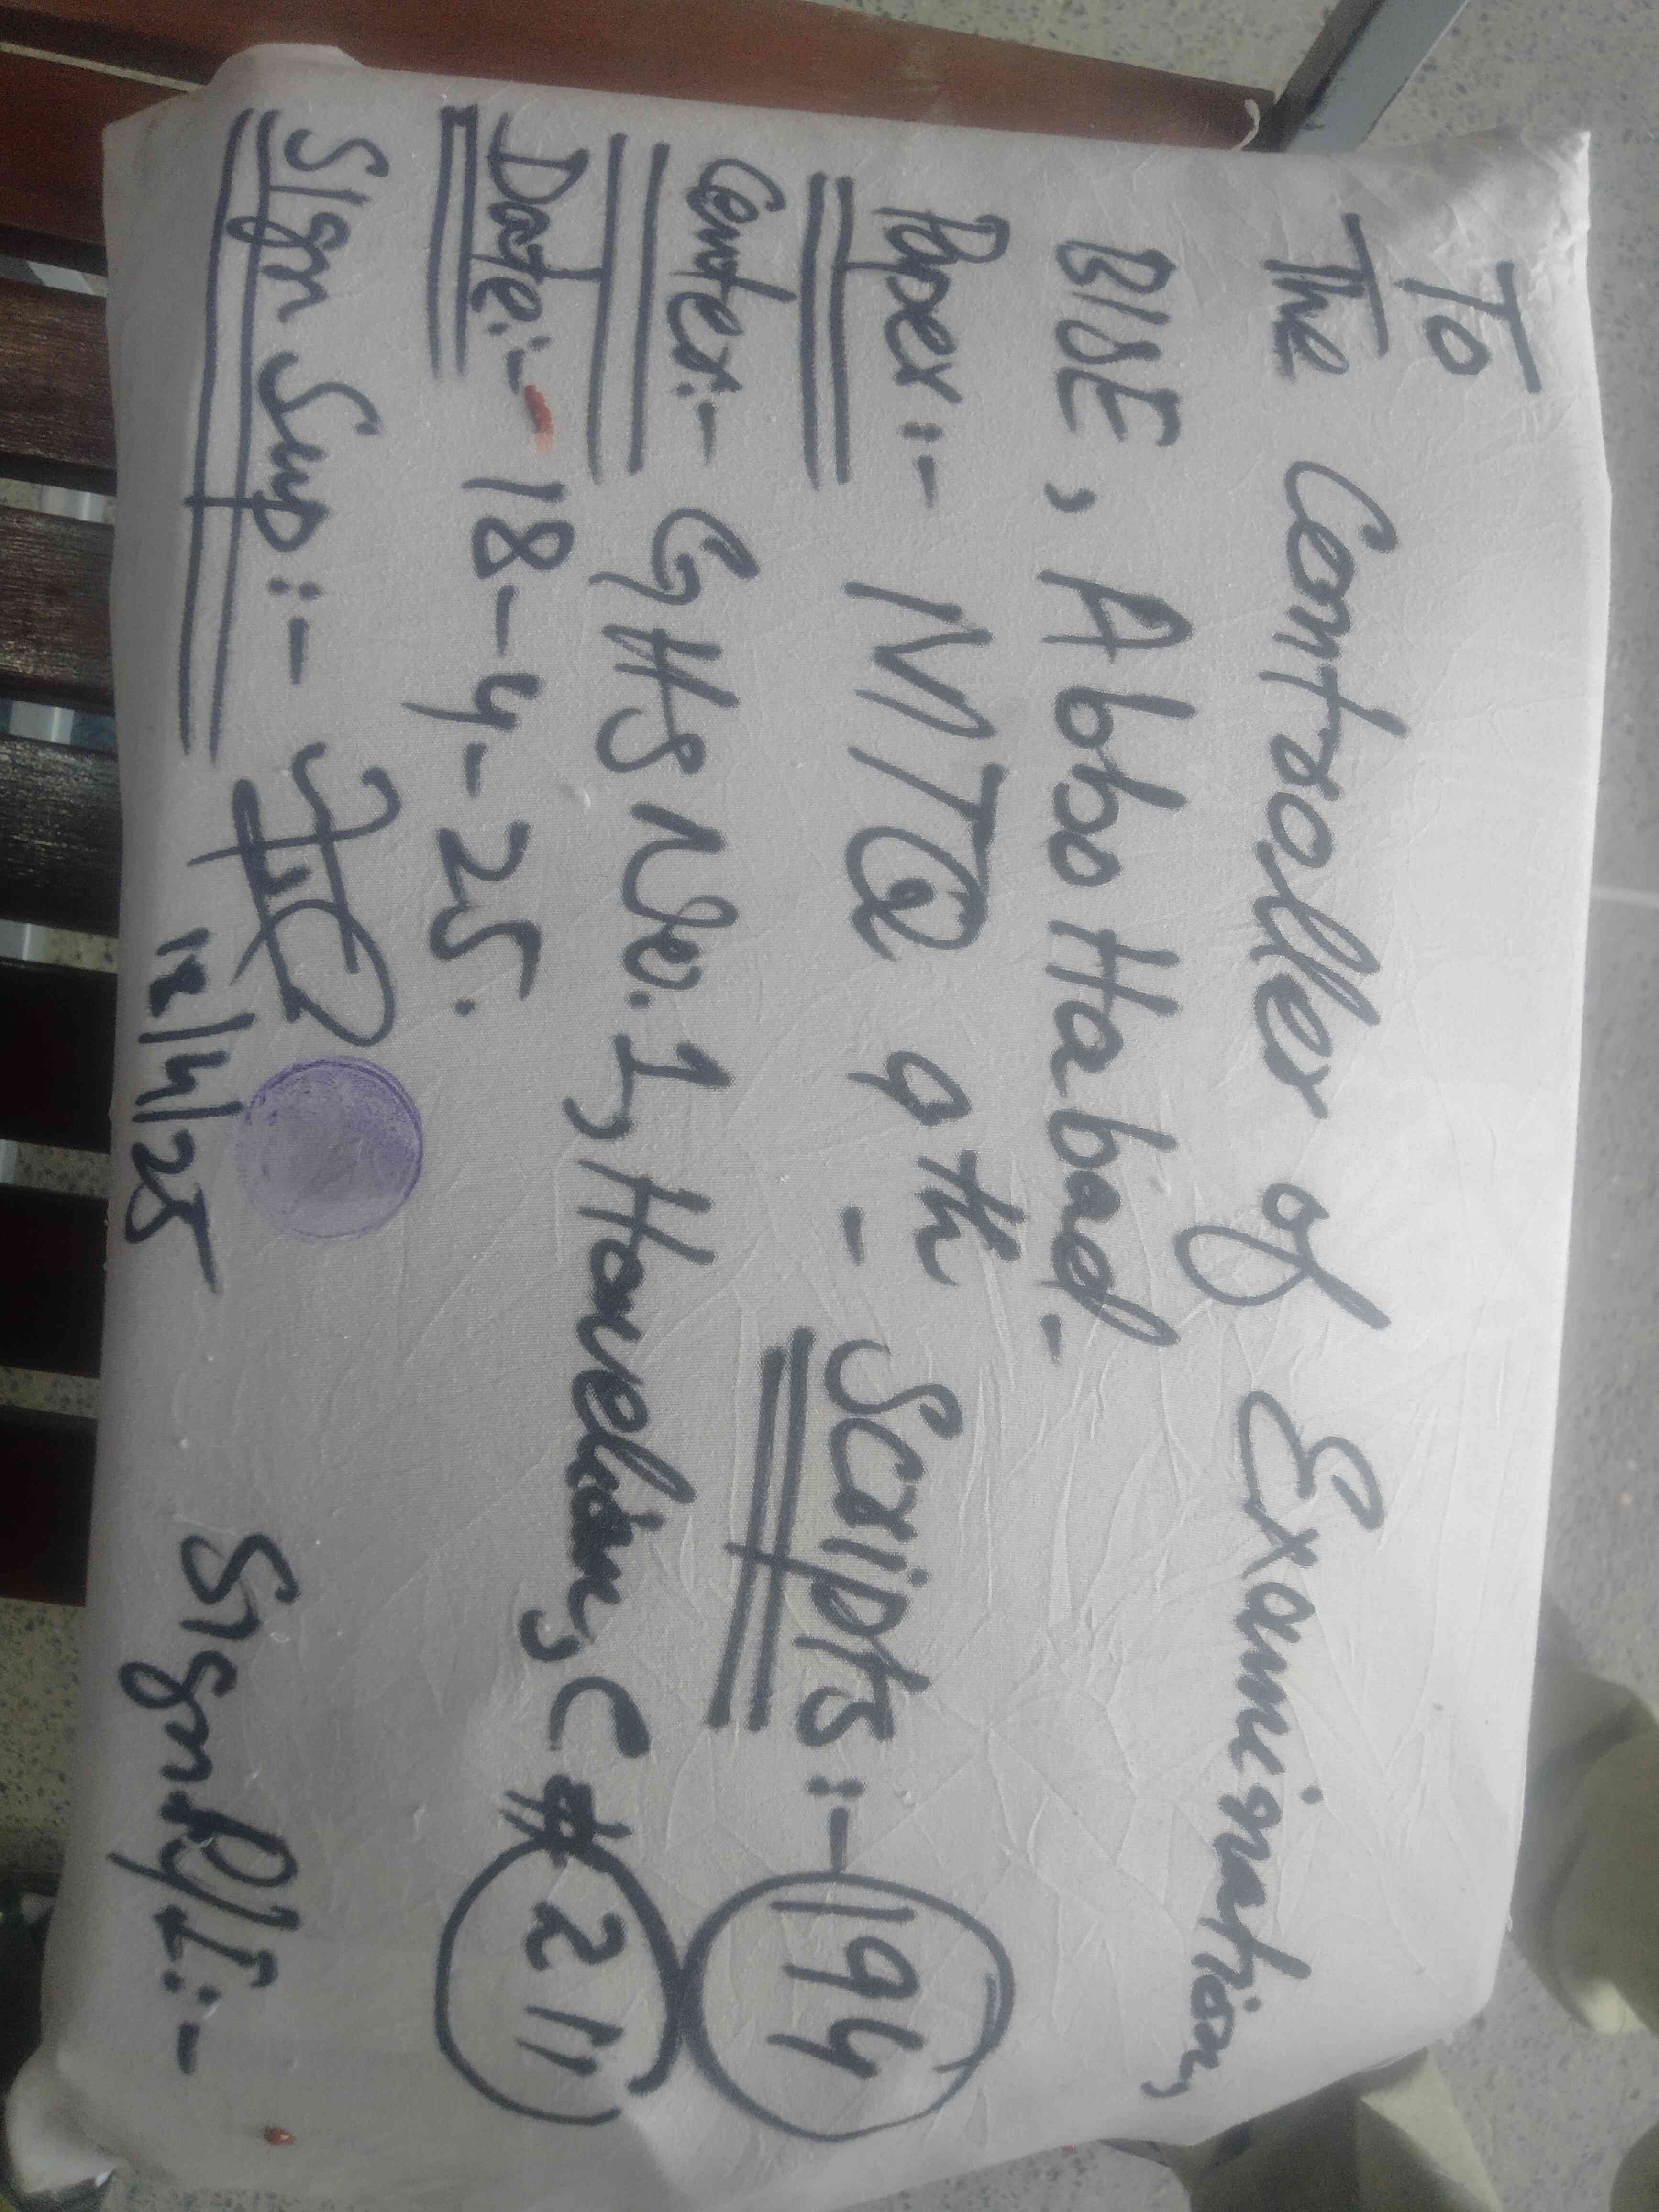 To
The Controller of Examination,
BISE, AbboHabad.
Paper:- MTQ 9th - Scripts:- 194
Center:- GHS No.1, Havelian, C # 211
Date:- 18-4-25.
Sign Sup:- Sign R/I:-
18/4/25